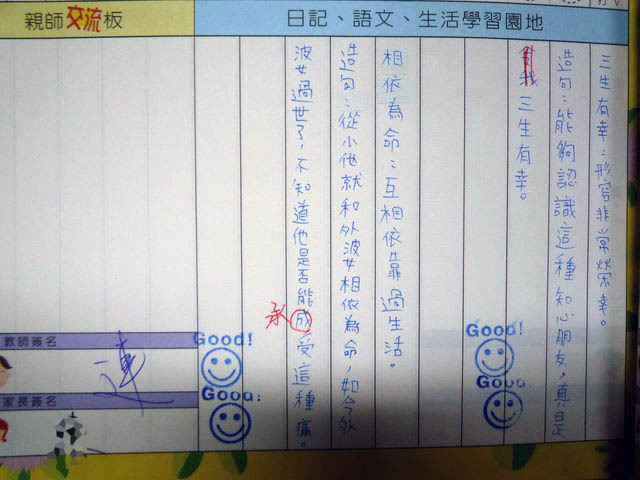 日記、語文、生活學習園地
親師交流板
三生有幸：形容非常榮幸。
造句：能夠認識這種知心朋友，真是
我三生有幸。
相依為命：互相依靠過生活。
造句：從小他就和外婆相依為命，如今外
婆過世了，不知道他是否能成受這種痛。
承
Good!
Good!
Good!
Good!
教師簽名
家長簽名